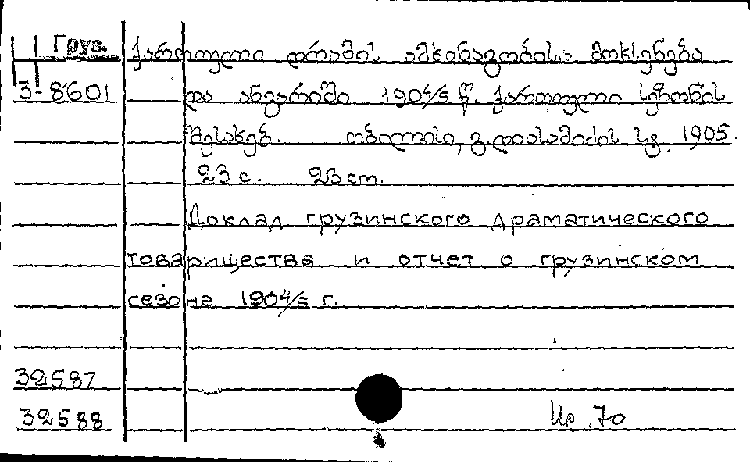 Груз.
ქართული დრამის ამხანაგობისა მოხსენება
3-8601 და ანგარიში 1904/5 წ. ქართული სეზონის
შესახებ. თბილისი, 1905.
23 с. 23 см.
Доклад грузинского драматического
товарищества и отчет о грузинском
сезоне 1904/5 г.
32587
32588 70